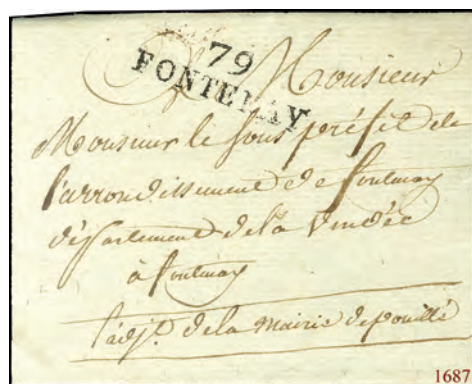 79
FONTENAY
A Monsieur
Monsieur le sous préfet de
l'arrondissement de fontenay
département de la Vendée
à fontenay
l'adjt. de la mairie de pouillé
1687